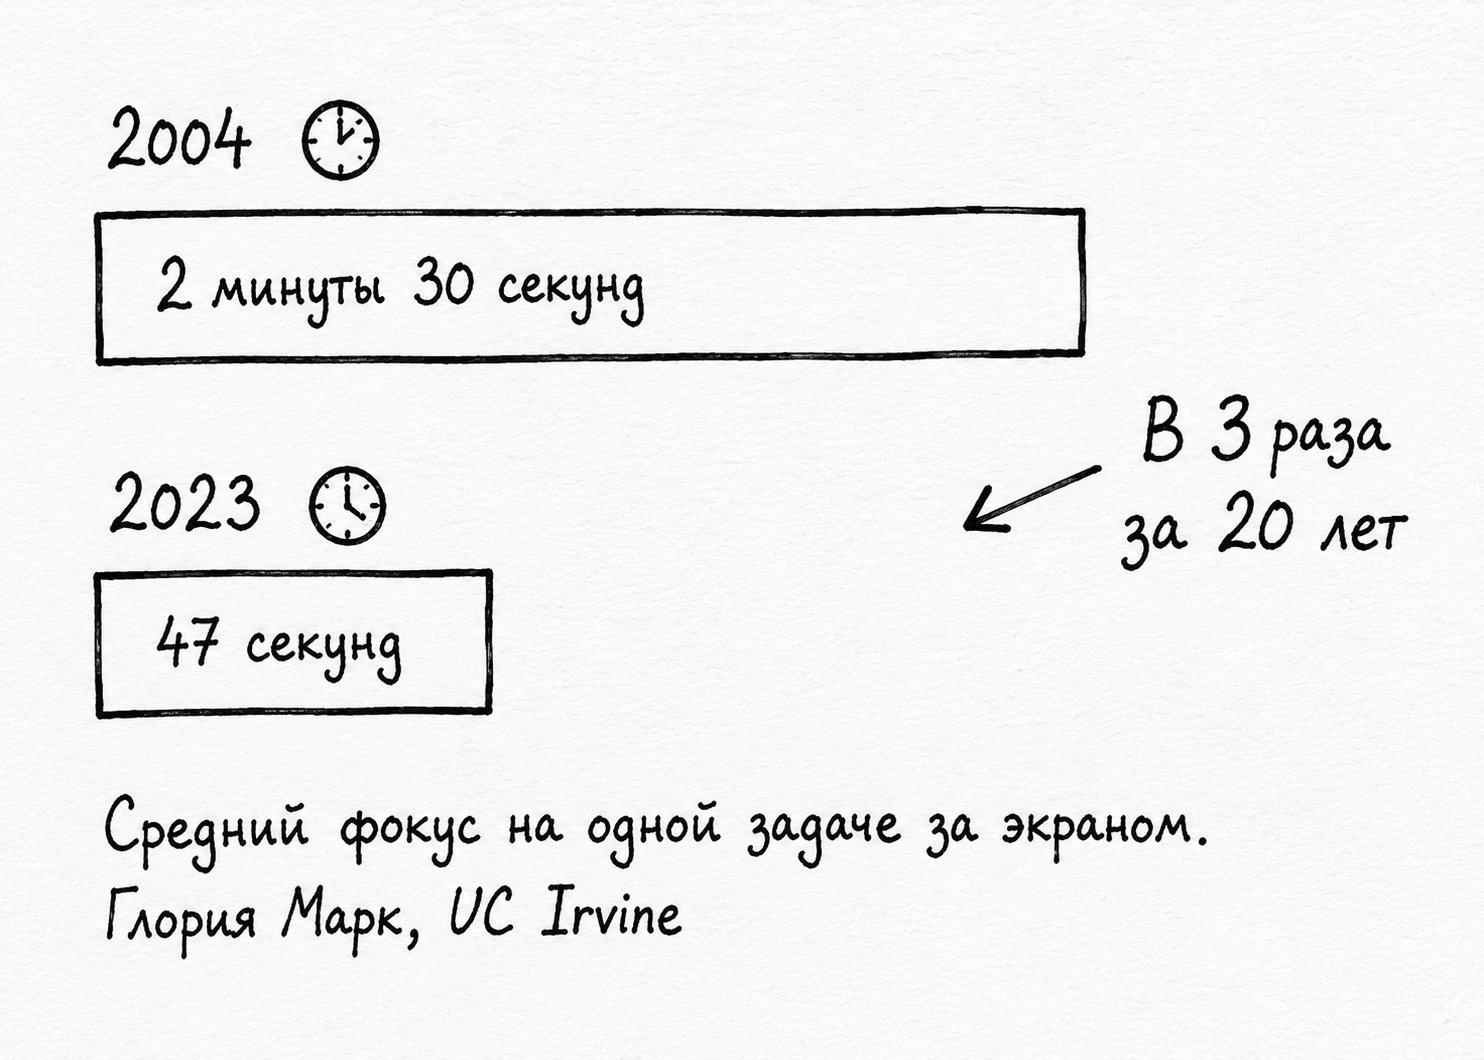 2004
2 минуты 30 секунд
В 3 раза
за 20 лет
2023
47 секунд
Средний фокус на одной задаче за экраном.
Глория Марк, UC Irvine